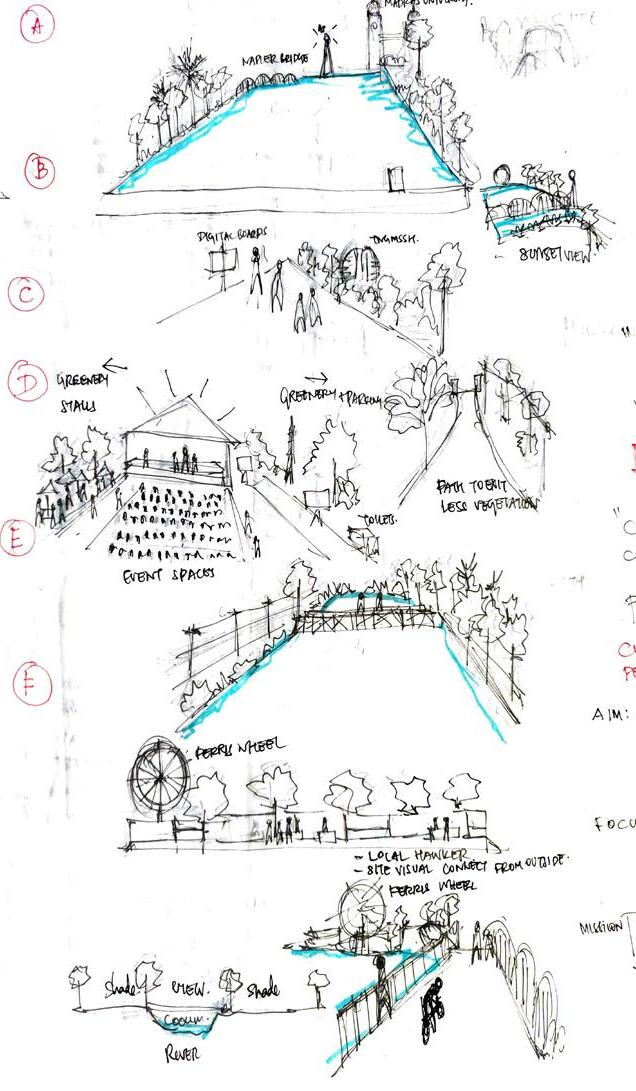 A
MADRAS UNIVERSITY.
NAPIER BRIDGE
B
SUNSET VIEW.
DIGITAL BOARDS
C
D
GREENERY
STALLS
GREENERY + PARKING
PATH TO EXIT
LESS VEGETATION
E
TOILETS.
EVENT SPACES
F
AIM:
FERRIS WHEEL
FOCU
- LOCAL HAWKER
- SITE VISUAL CONNECT FROM OUTSIDE.
FERRIS WHEEL
MISSION
shade VIEW. shade
COOUM.
RIVER